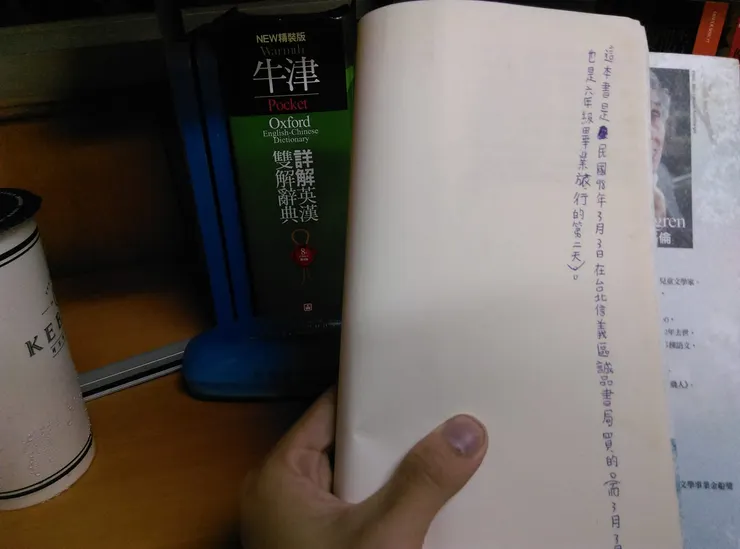 NEW精裝版
牛津
Pocket
Oxford
English-Chinese
Dictionary
詳解英漢
雙解辭典
這本書是民國98年3月3日在台北信義區誠品書局買的。(而3月3日
也是六年級畢業旅行的第二天)。
gren
倫
兒童文學家,
年去世,
種語文,